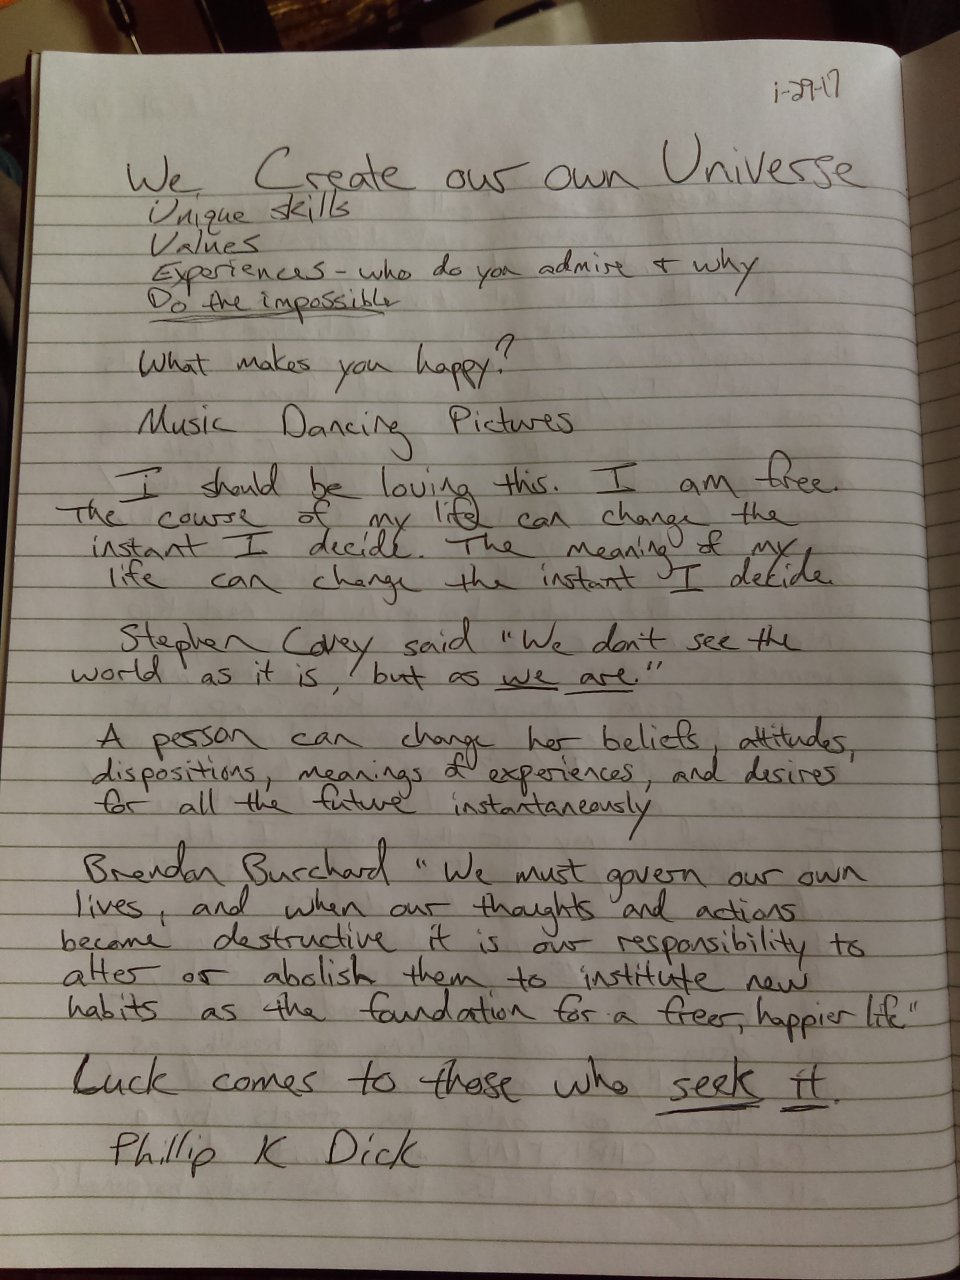 1-29-17
We Create our own Universe
Unique skills
Values
Experiences - who do you admire + why
Do the impossible
What makes you happy?
Music Dancing Pictures
I should be loving this. I am free.
The course of my life can change the
instant I decide. The meaning of my
life can change the instant I decide.
Stephen Covey said "We don't see the
world as it is, but as we are."
A person can change her beliefs, attitudes,
dispositions, meanings of experiences, and desires
for all the future instantaneously
Brendan Burchard "We must govern our own
lives, and when our thoughts and actions
become destructive it is our responsibility to
alter or abolish them to institute new
habits as the foundation for a freer, happier life"
Luck comes to those who seek it.
Phillip K Dick